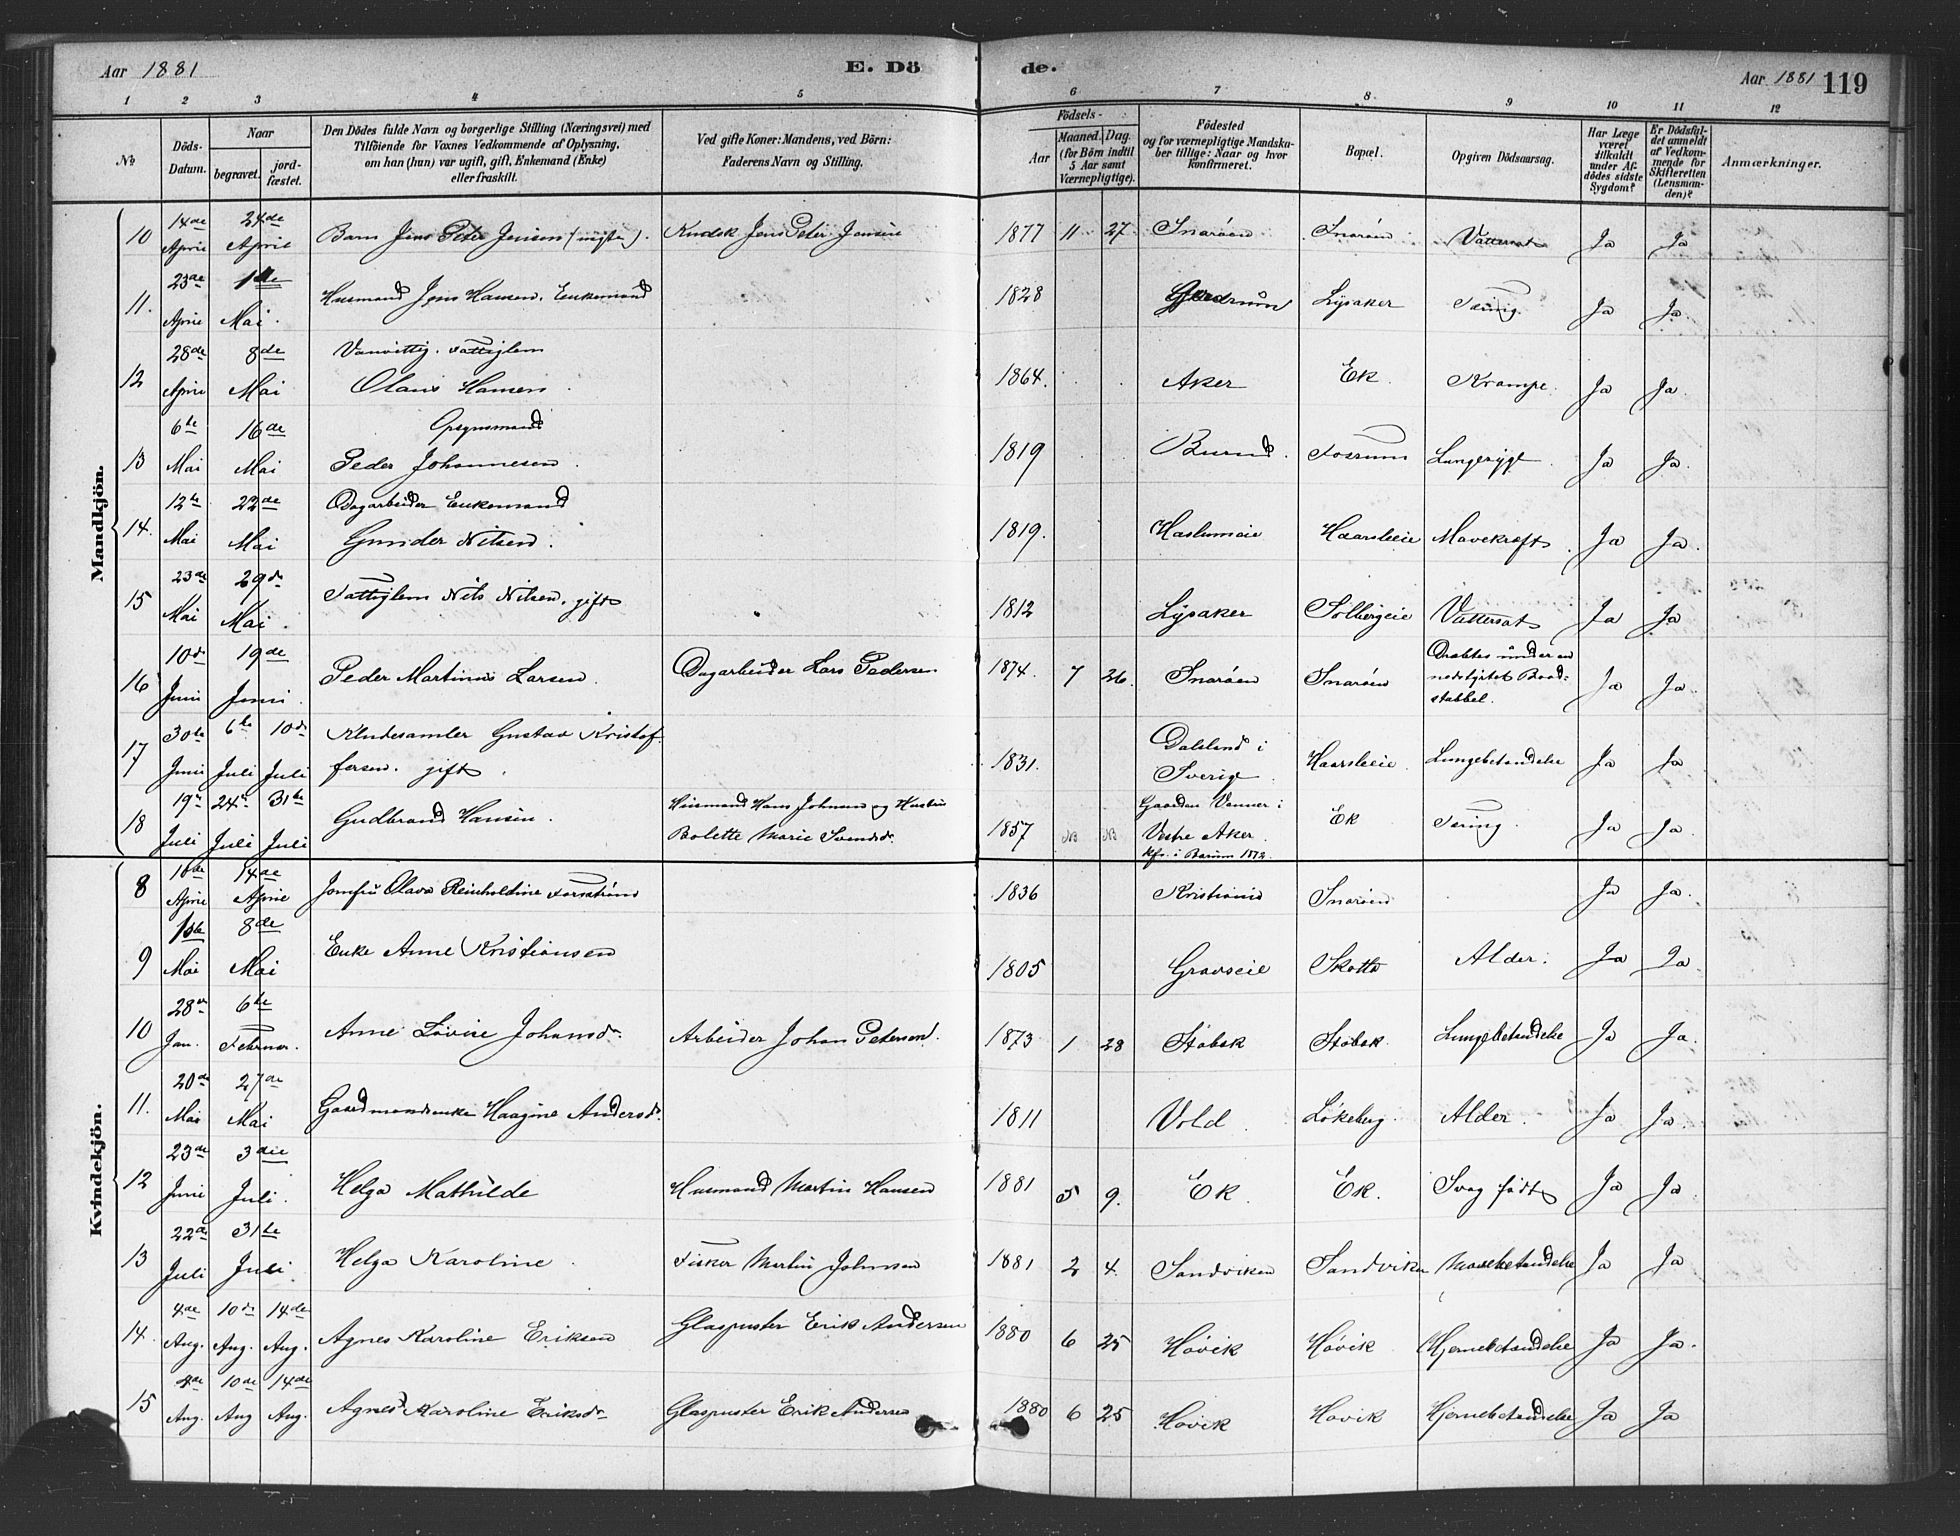 Aar 1881
E. Dö
de.
Aar 1881 119
1 2 3 4 5 6 7 8 9 10 11 12
No
Döds-Datum.
Naar
begravet.
jord-fæstet.
Den Dödes fulde Navn og borgerlige Stilling (Næringsvei) med
Tilföiende for Voxnes Vedkommende af Oplysning,
om han (hun) var ugift, gift, Enkemand (Enke)
eller fraskilt.
Ved gifte Koner: Mandens, ved Börn:
Faderens Navn og Stilling.
Födsels-
Aar
Maaned. Dag.
(for Börn indtil
5 Aar samt
Værnepligtige).
Födested
og for værnepligtige Mandska-
ber tillige: Naar og hvor
konfirmeret.
Bopæl.
Opgiven Dödsaarsag.
Har Læge
været
tilkaldt
under Af-
dödes sidste
Sygdom?
Er Dödsfal-
det anmeldt
af Vedkom-
mende for
Skifteretten
(Lensman-
den)?
Anmærkninger.
Mandkjön.
10 14de April 24de April Barn Jens Peter Jensen Jens Peter Jensen 1877 11 27 Snaröen Snaröen Vattersot Ja Ja
11. 23de April 1ste Mai. Husmand Jens Hansen. Enkemand 1828 Gjerdrum Lysaker Tæring. Ja Ja.
12 28de April 8de Mai Vanvittig. Fattiglem
Olaus Hansen 1864. Aker Ek. Krampe. Ja Ja.
13 6te Mai 16de Mai Opsynsmand
Peder Johannesen 1819 Burud Fossum Lungesyge Ja Ja.
14. 12te Mai 22de Mai Dagarbeider Enkemand
Gunder Nilsen. 1819. Haslumeie Haarsleie Mavekræft. Ja Ja.
15 23de Mai 29de Mai. Fattiglem Nils Nilsen. gift 1812 Lysaker Solbergeie Vattersot Ja Ja
16 10de Juni 19de Juni. Peder Martinus Larsen. Dagarbeider Lars Pedersen 1874. 7 26. Snaröen Snaröen Dræbtes under en
nedstyrtet Bord-
stabbel. Ja Ja.
17 30te Juni 6te Juli 10de Juli Kludesamler Gustav Kristof-
fersen. gift. 1831. Dalsland i
Sverige Haarsleie Lungebetændelse Ja Ja
18 19de Juli 24de Juli 31te Juli Gudbrand Hansen. Husmand Hans Johnsen og Hustru
Bolette Marie Svendsdr. 1857 NB NB Gaarden Venner i
Vestre Aker.
Kfr. i Bærum 1872. Ek Tæring. Ja Ja.
Kvindekjön.
8 April 14de April Jomfru Olava Reinholdine 1836 Kristiania Snaröen Ja Ja.
9 1ste Mai 8de Mai Enke Anne Kristiansen 1805 Gravseie Skotta Alder. Ja Ja
10 28de Jan. 6te Februar. Anne Lovise Johansdr. Arbeider Johan Petersen. 1873 1 28 Stabæk Stabæk. Lungebetændelse Ja Ja.
11. 20de Mai 27de Mai Gaardmandsenke Haagine Andersdr. 1811 Vold. Lökeberg. Alder. Ja Ja.
12 23de Juni 3die Juli. Helga Mathilde Husmand Martin Hansen 1881 5 9. Ek Ek. Svag födt Ja Ja.
13 22de Juli 31te Juli. Helga Karoline. Fisker Martin Johnsen 1881 2 4. Sandviken Sandviken Mavebetændelse Ja Ja
14. 4de Aug. 10de Aug. 14de Aug. Agnes Karoline Eriksen Glaspuster Erik Andersen 1880 6 25 Hövik Hövik Hjernebetændelse Ja Ja.
15 4de Aug. 10de Aug 14de Aug. Agnes Karoline Eriksdr Glaspuster Erik Andersen 1880 6 25 Hövik Hövik Hjernebetændelse Ja Ja